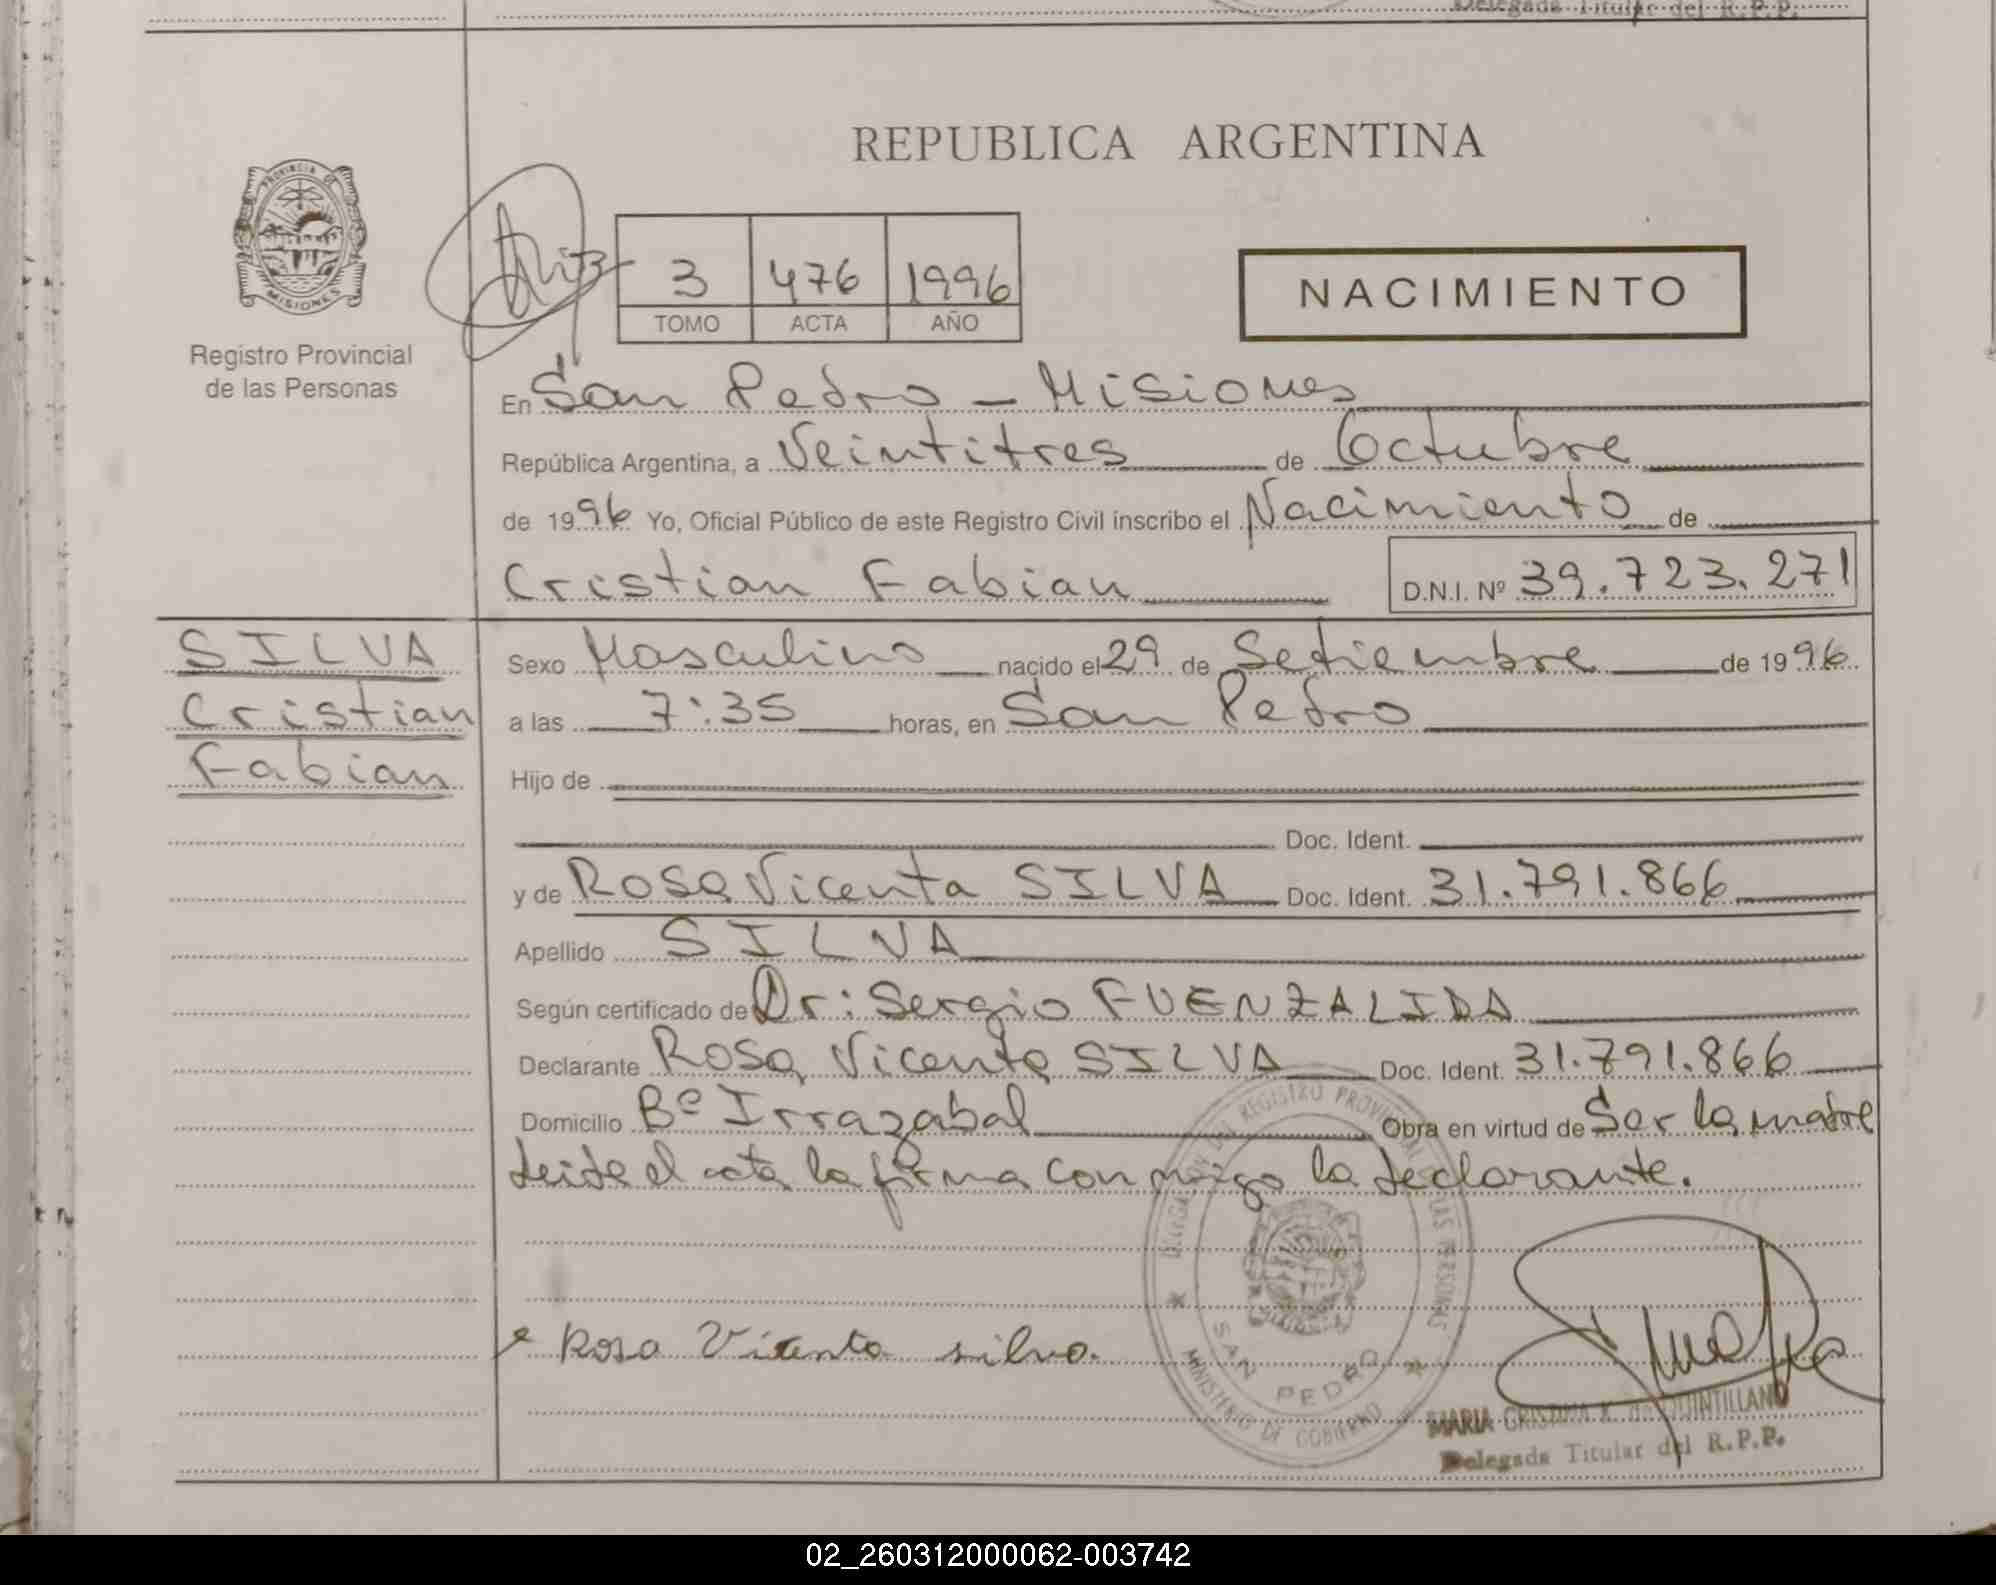 Delegada Titular del R.P.P.
REPUBLICA ARGENTINA
PROVINCIA DE
MISIONES
Registro Provincial
de las Personas
3 476 1996
TOMO ACTA AÑO
NACIMIENTO
En San Pedro - Misiones
República Argentina, a Veintitres de Octubre
de 1996 Yo, Oficial Público de este Registro Civil inscribo el Nacimiento de
Cristian Fabian D.N.I. Nº 39.723.271
SILVA
Cristian
Fabian
Sexo Masculino nacido el 29 de Setiembre de 1996
a las 7:35 horas, en San Pedro
Hijo de
Doc. Ident.
y de Rosa Vicenta SILVA Doc. Ident. 31.791.866
Apellido SILVA
Según certificado de Dr: Sergio FUENZALIDA
Declarante Rosa Vicenta SILVA Doc. Ident. 31.791.866
Domicilio Bº Irrazabal Obra en virtud de Ser la madre
Leida el acta la firma con migo la declarante.
Rosa Vicenta silva.
REGISTRO PROVINCIAL
LAS PERSONAS
SAN PEDRO
MINISTERIO DE GOBIERNO
MARIA CRISTINA K. de QUINTILLANO
Delegada Titular del R.P.P.
02_260312000062-003742